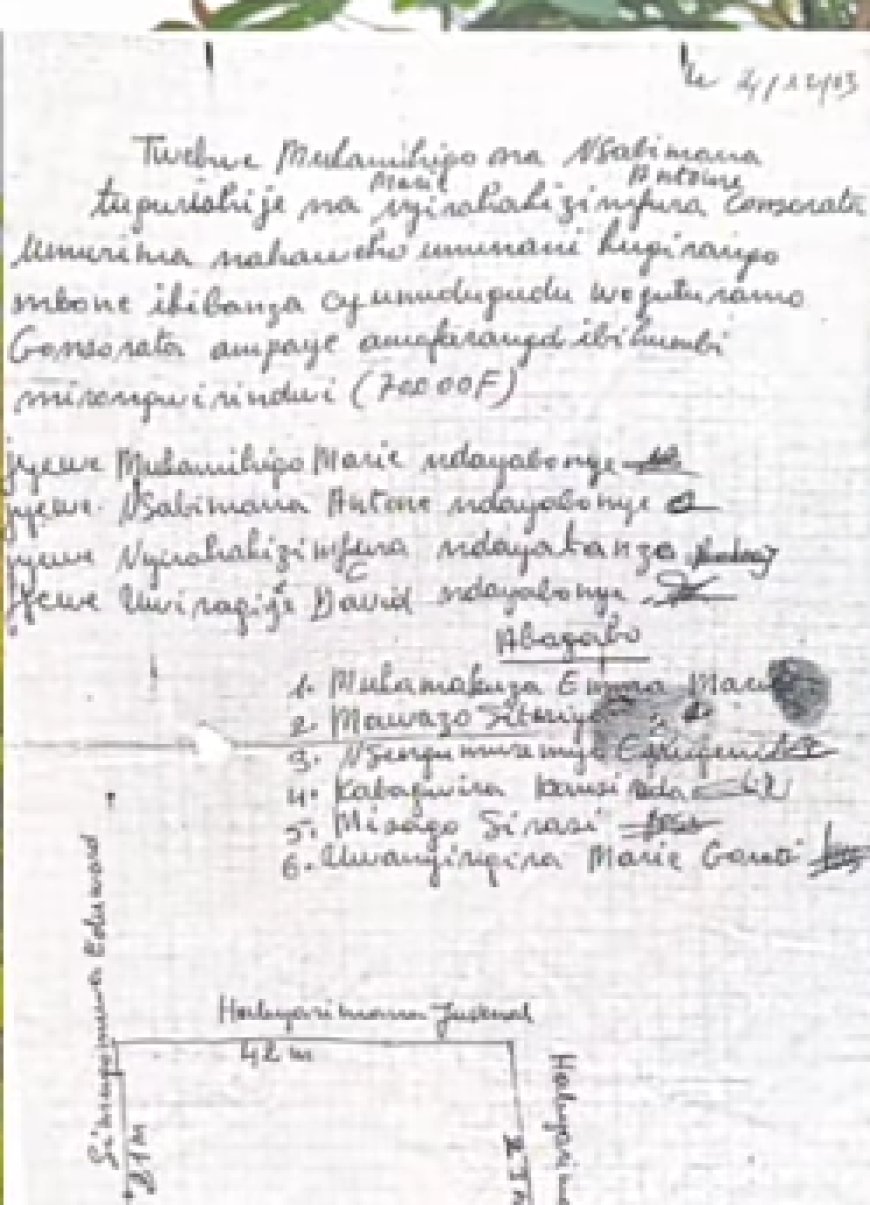 Le 4/12/03
Twebwe Mukamihigo na NSabimana
Marie Antoine
tugurishije na nyirahabizimfura Consorata
Umurima nahaweho umunani kugirango
mbone ikibanza cy umudugudu wo guturamo
Consorata ampaye amafaranga ibihumbi
mirongwirindwi (70000F)
jyewe Mukamihigo Marie ndayabonye
jyewe NSabimana Antone ndayabonye
jyewe Nyirahabizimfura C ndayatanze
Jyewe Uwiragije David ndayabonye
Abagabo
1. Mukamakuza Emma Marie
2. Mawazo Siteriya
3. NSengumuremyi
4. Kabagwira
5. Misago Sirasi
6. Uwanyirigira Marie
Edouward
Habyarimana Juvenal
42 m
21 m